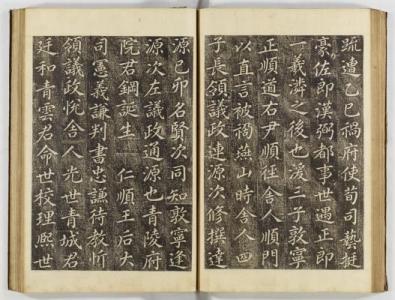 疏遭乙巳禍府使荀司藝挺
亮佐郎漢弼都事世遇正郎
一義潾之後也湲三子敦寧
正順道右尹順徑舍人順門
以直言被禍燕山時舍人四
子長領議政連源次修撰達
源己卯名賢次同知敦寧逢
源次左議政通源也青陵府
院君鋼誕生 仁順王后大
司憲義謙判書忠謙待教忻
領議政悅舍人光世青城君
廷和青雲君命世校理熙世